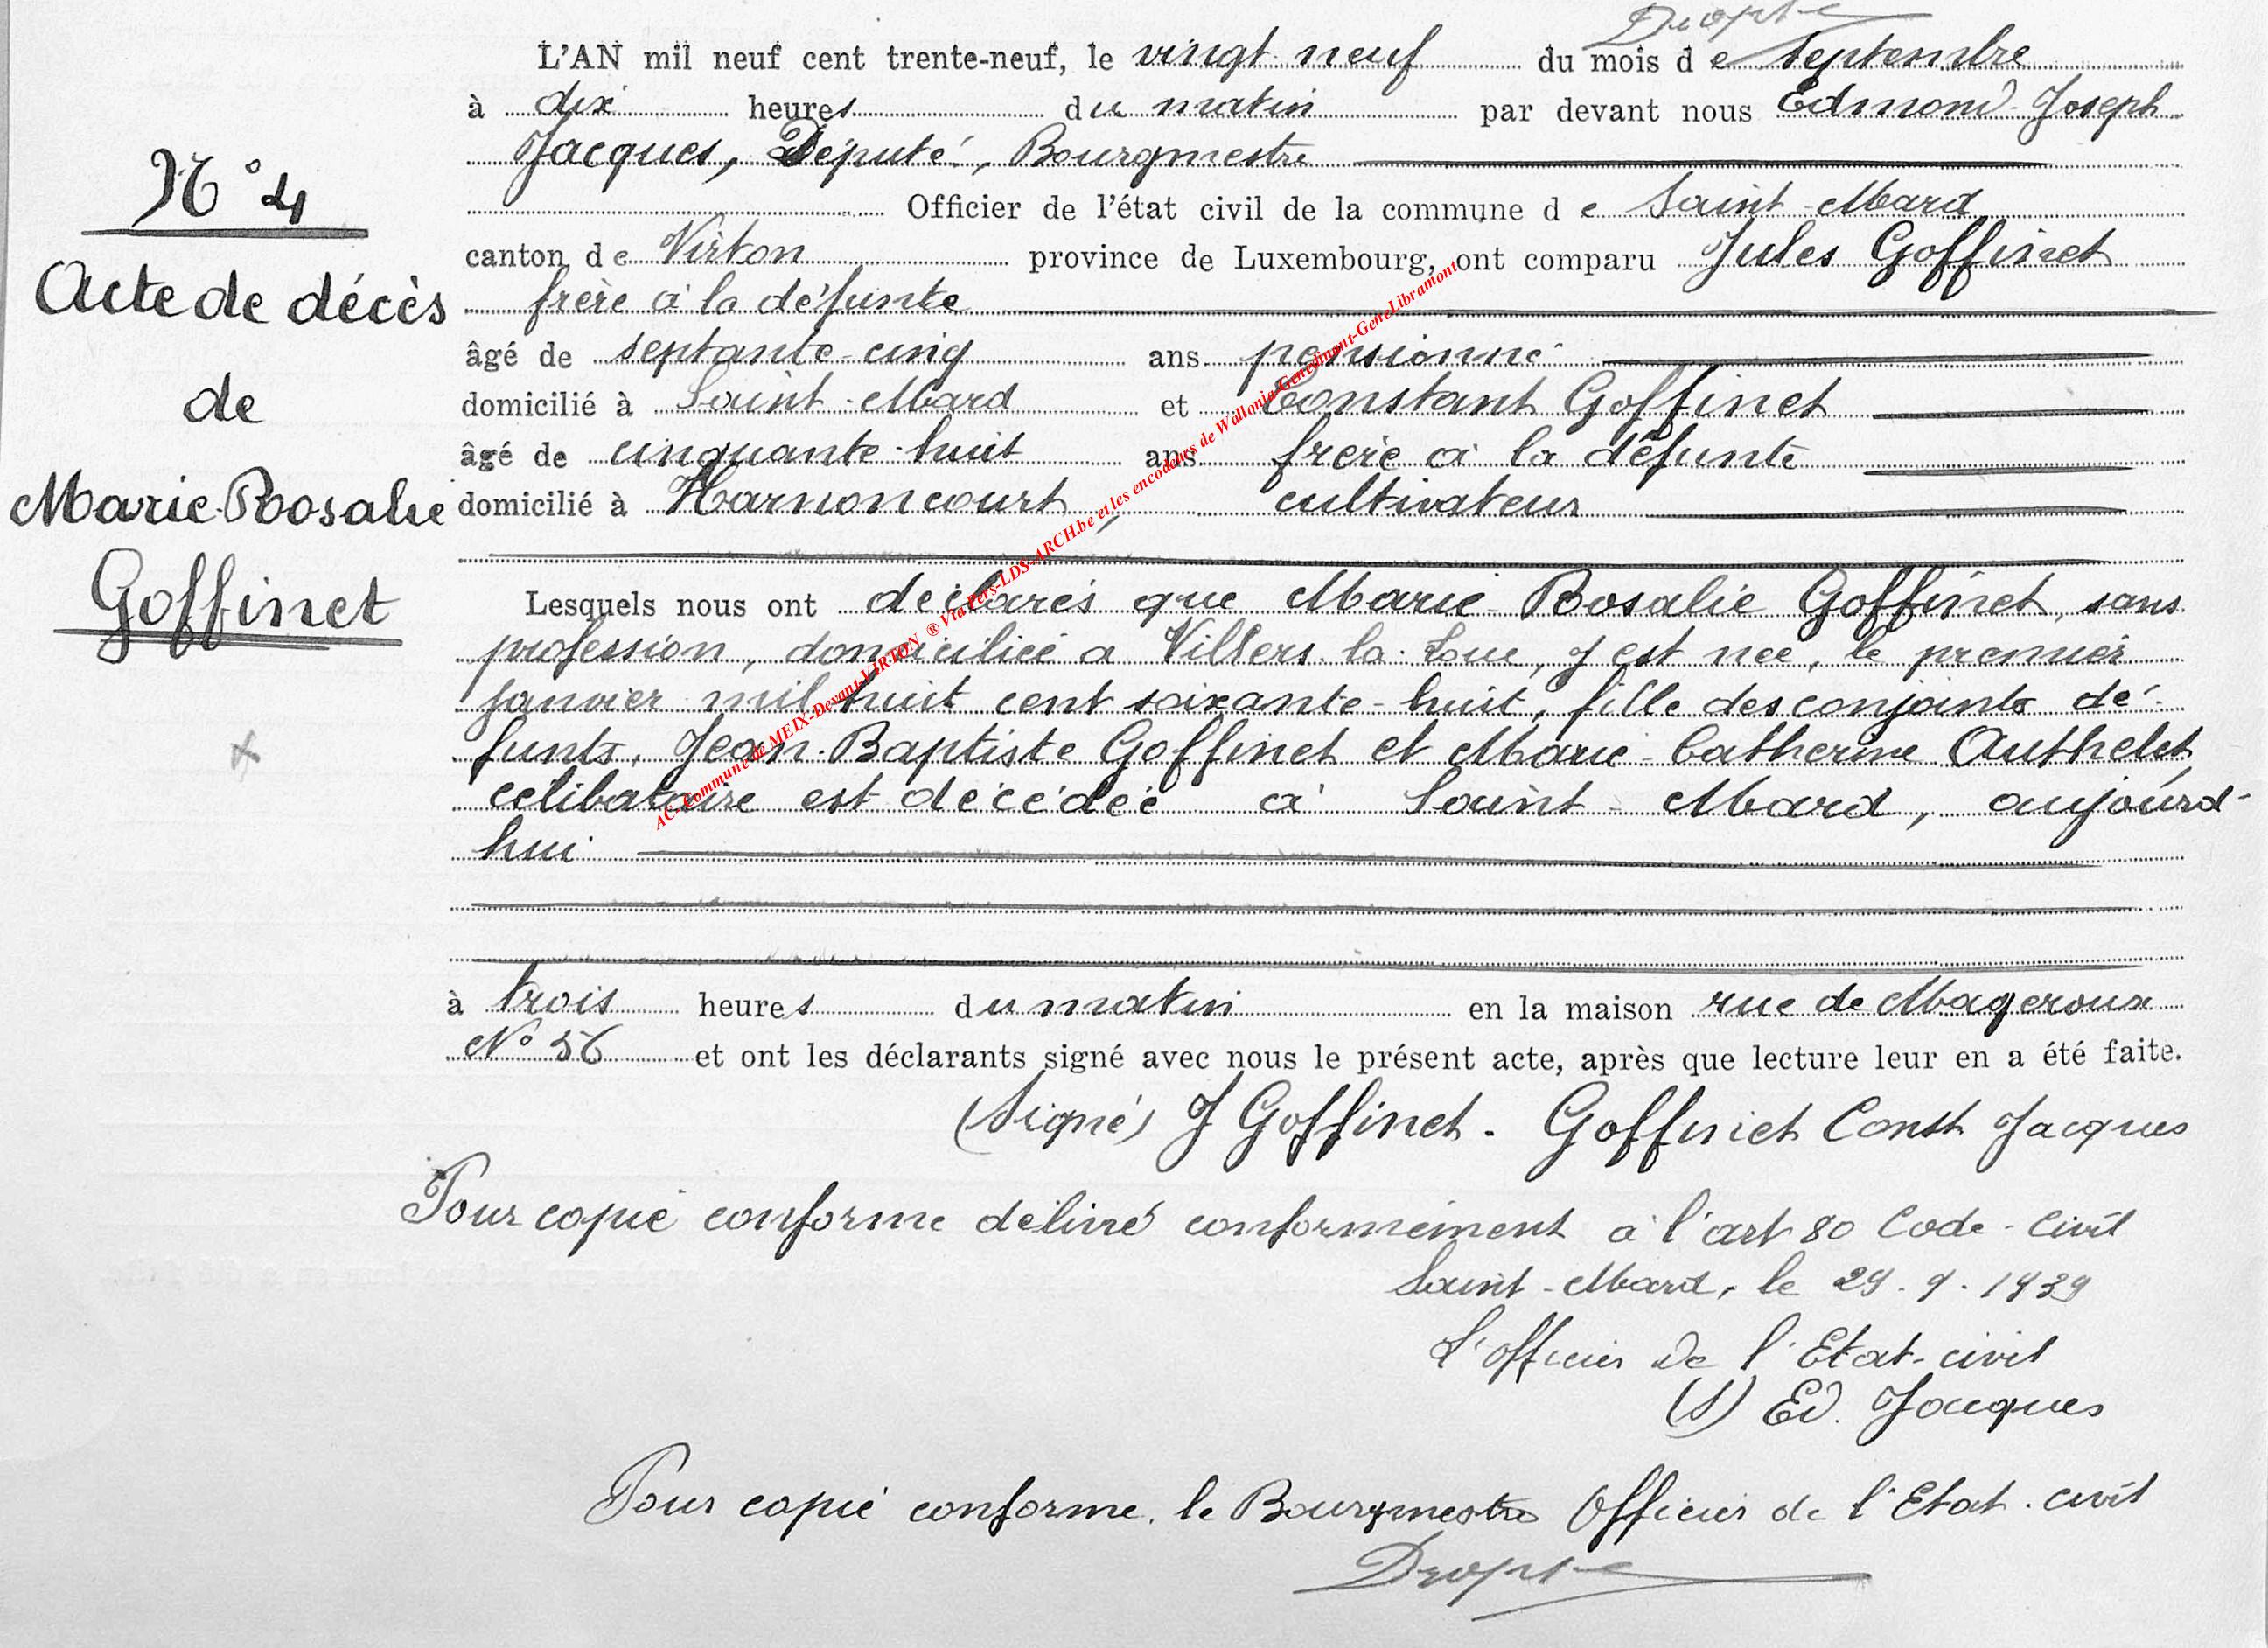 N° 4
Acte de décès
de
Marie-Rosalie
Goffinet
L'AN mil neuf cent trente-neuf, le vingt neuf du mois d e septembre
à dix heures du matin par devant nous Edmond-Joseph
Jacques, Député, Bourgmestre
Officier de l'état civil de la commune d e Saint-Mard
canton de Virton province de Luxembourg, ont comparu Jules Goffinet
frère à la défunte
âgé de septante-cinq ans pensionné
domicilié à Saint-Mard et Constant Goffinet
âgé de cinquante-huit ans frère à la défunte
domicilié à Harnoncourt, cultivateur
Lesquels nous ont déclarés que Marie-Rosalie Goffinet, sans
profession, domiciliée a Villers-la-Loue, y est née, le premier
janvier mil huit cent soixante-huit, fille des conjoints dé-
funts, Jean-Baptiste Goffinet et Marie-Catherine Authelet,
célibataire est décédée à Saint-Mard, aujourd-
hui
à trois heures du matin en la maison rue de Mageroux
N° 56 et ont les déclarants signé avec nous le présent acte, après que lecture leur en a été faite.
(Signé) J Goffinet. Goffinet Const Jacques
Pour copie conforme délivré conformément à l'art 80 Code-Civil
Saint-Mard, le 29-9-1939
L'officier de l'Etat-civil
(S) Ed. Jacques
Pour copie conforme, le Bourgmestre Officier de l'Etat-civil
AC-Commune de MEIX-Devant-VIRTON ® Via Pers-LDS-ARCH.be et les encodeurs de Wallonia-Genedinant-GeneLibramont